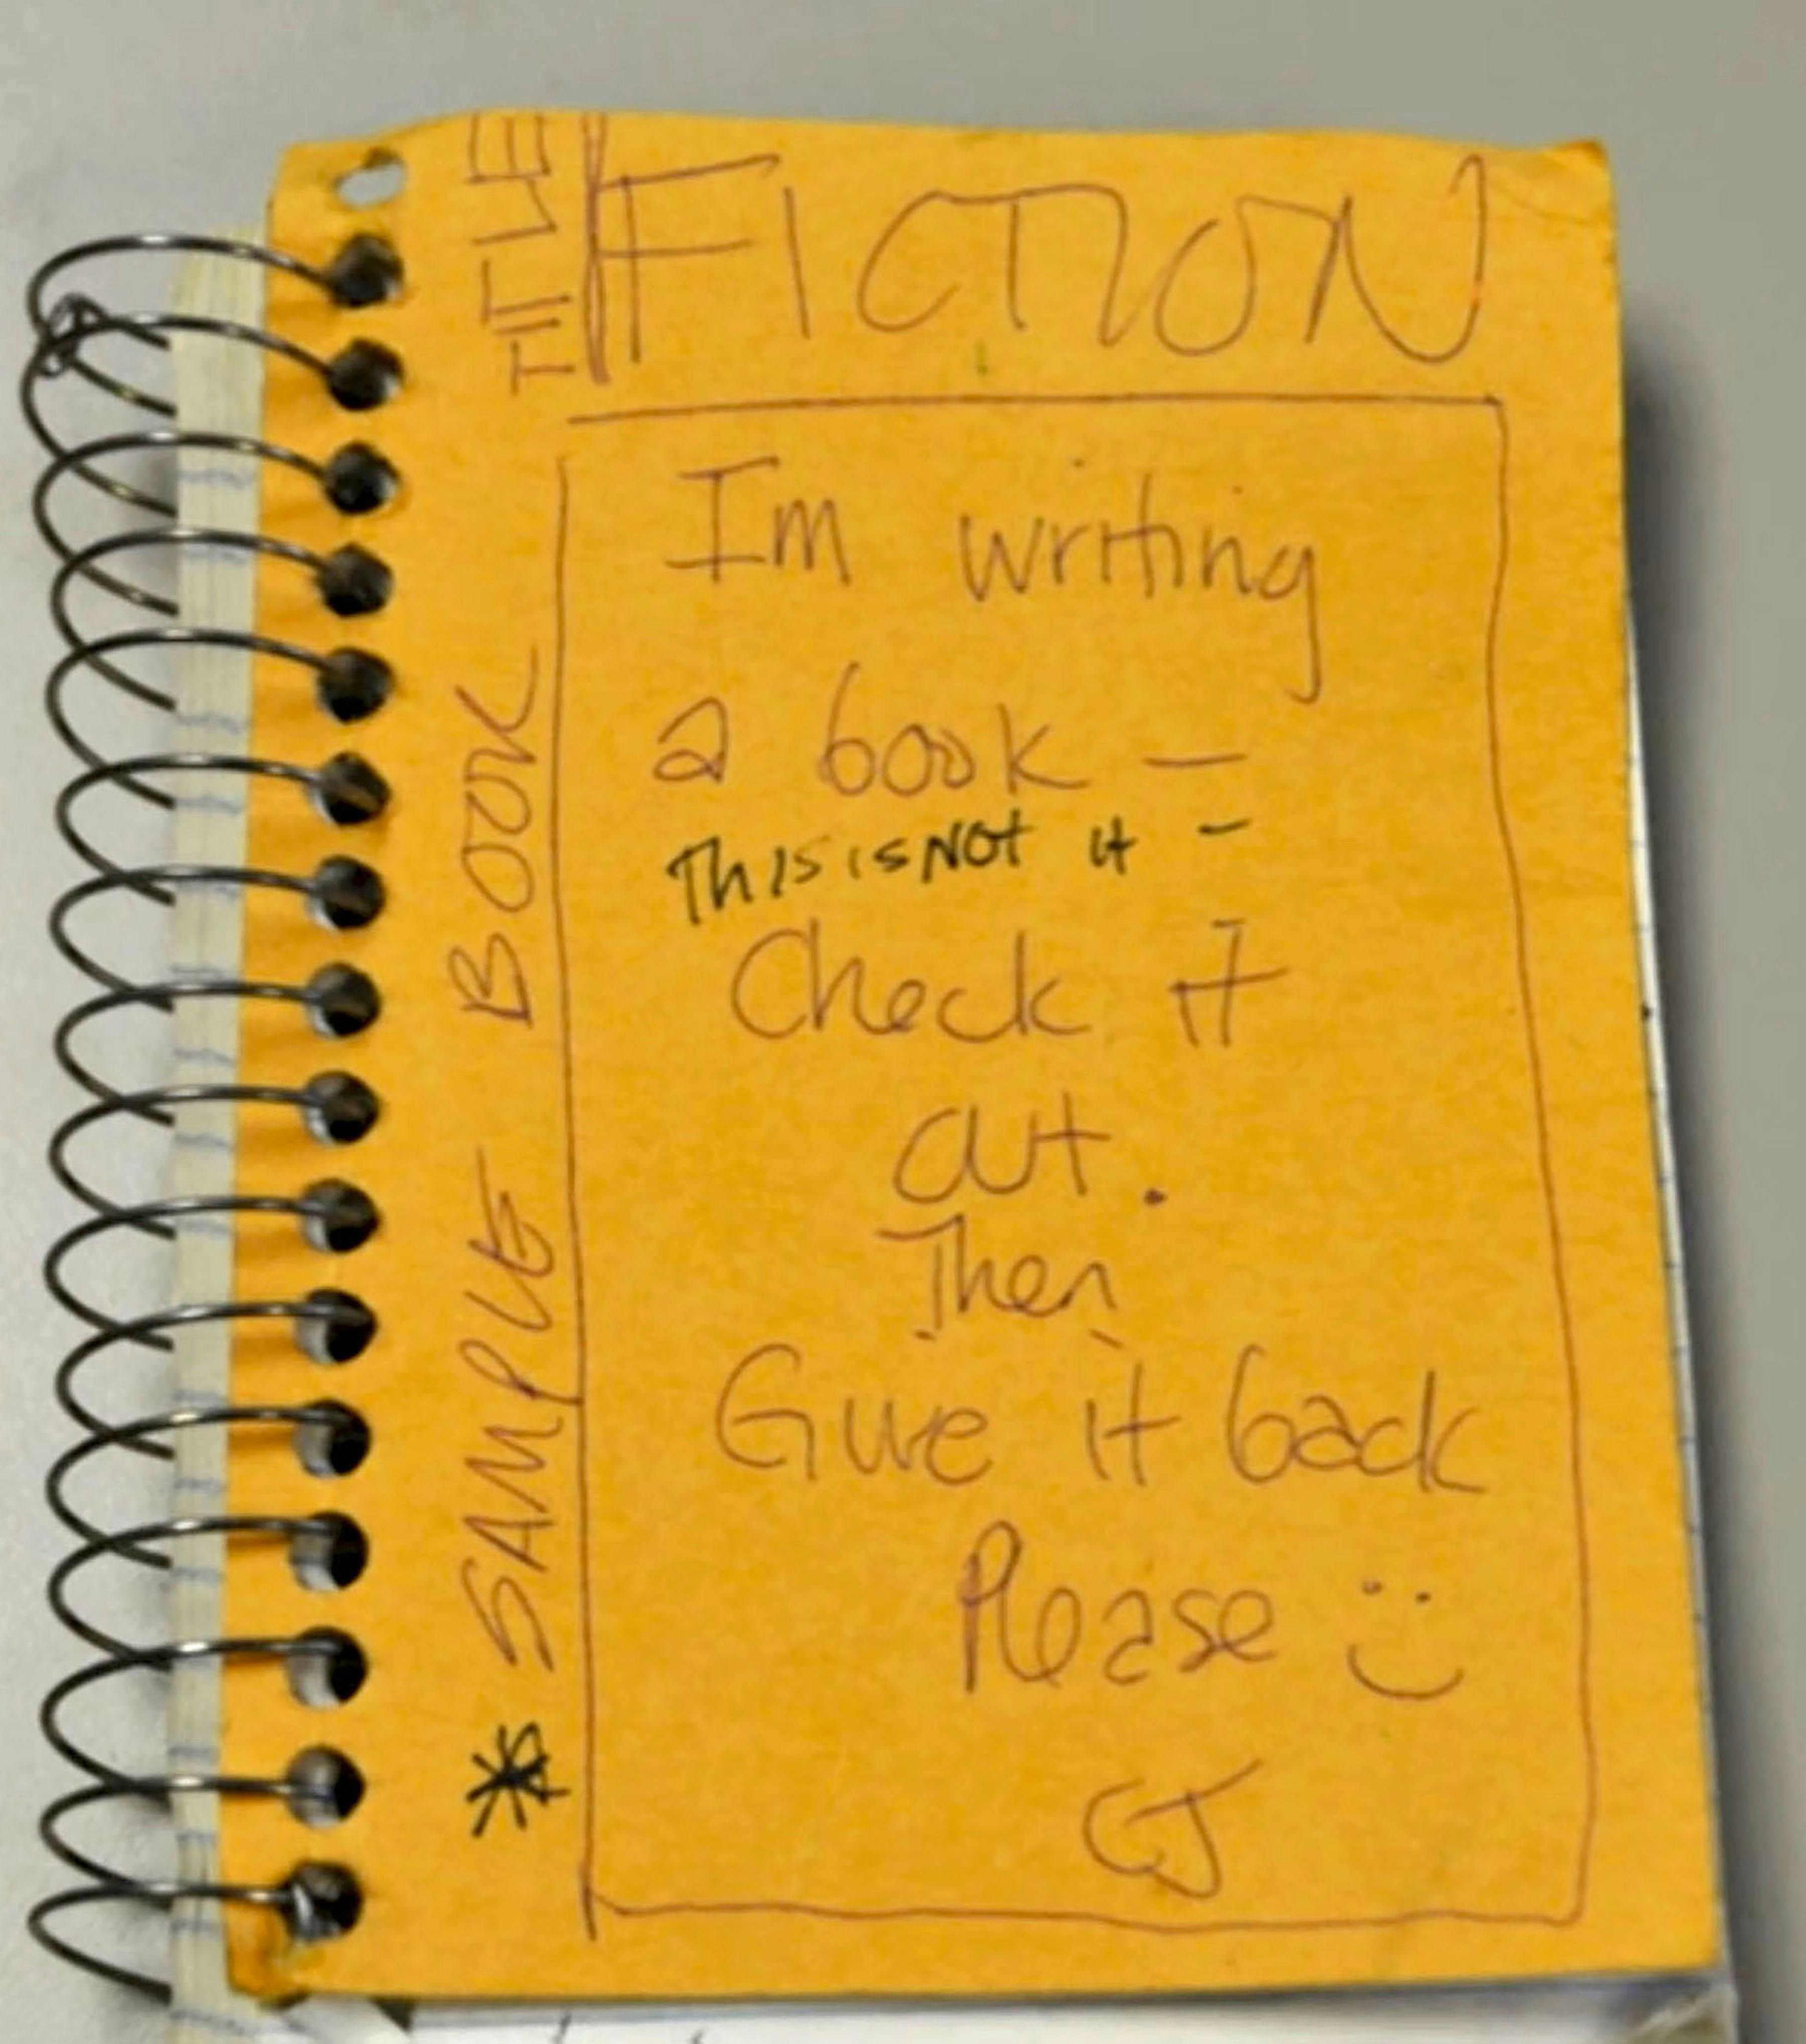 TITLE
FICTION
Im writing
a book —
This is NOT it -
Check it
out.
Then
Give it back
Please :)
CJ
* SAMPLE BOOK